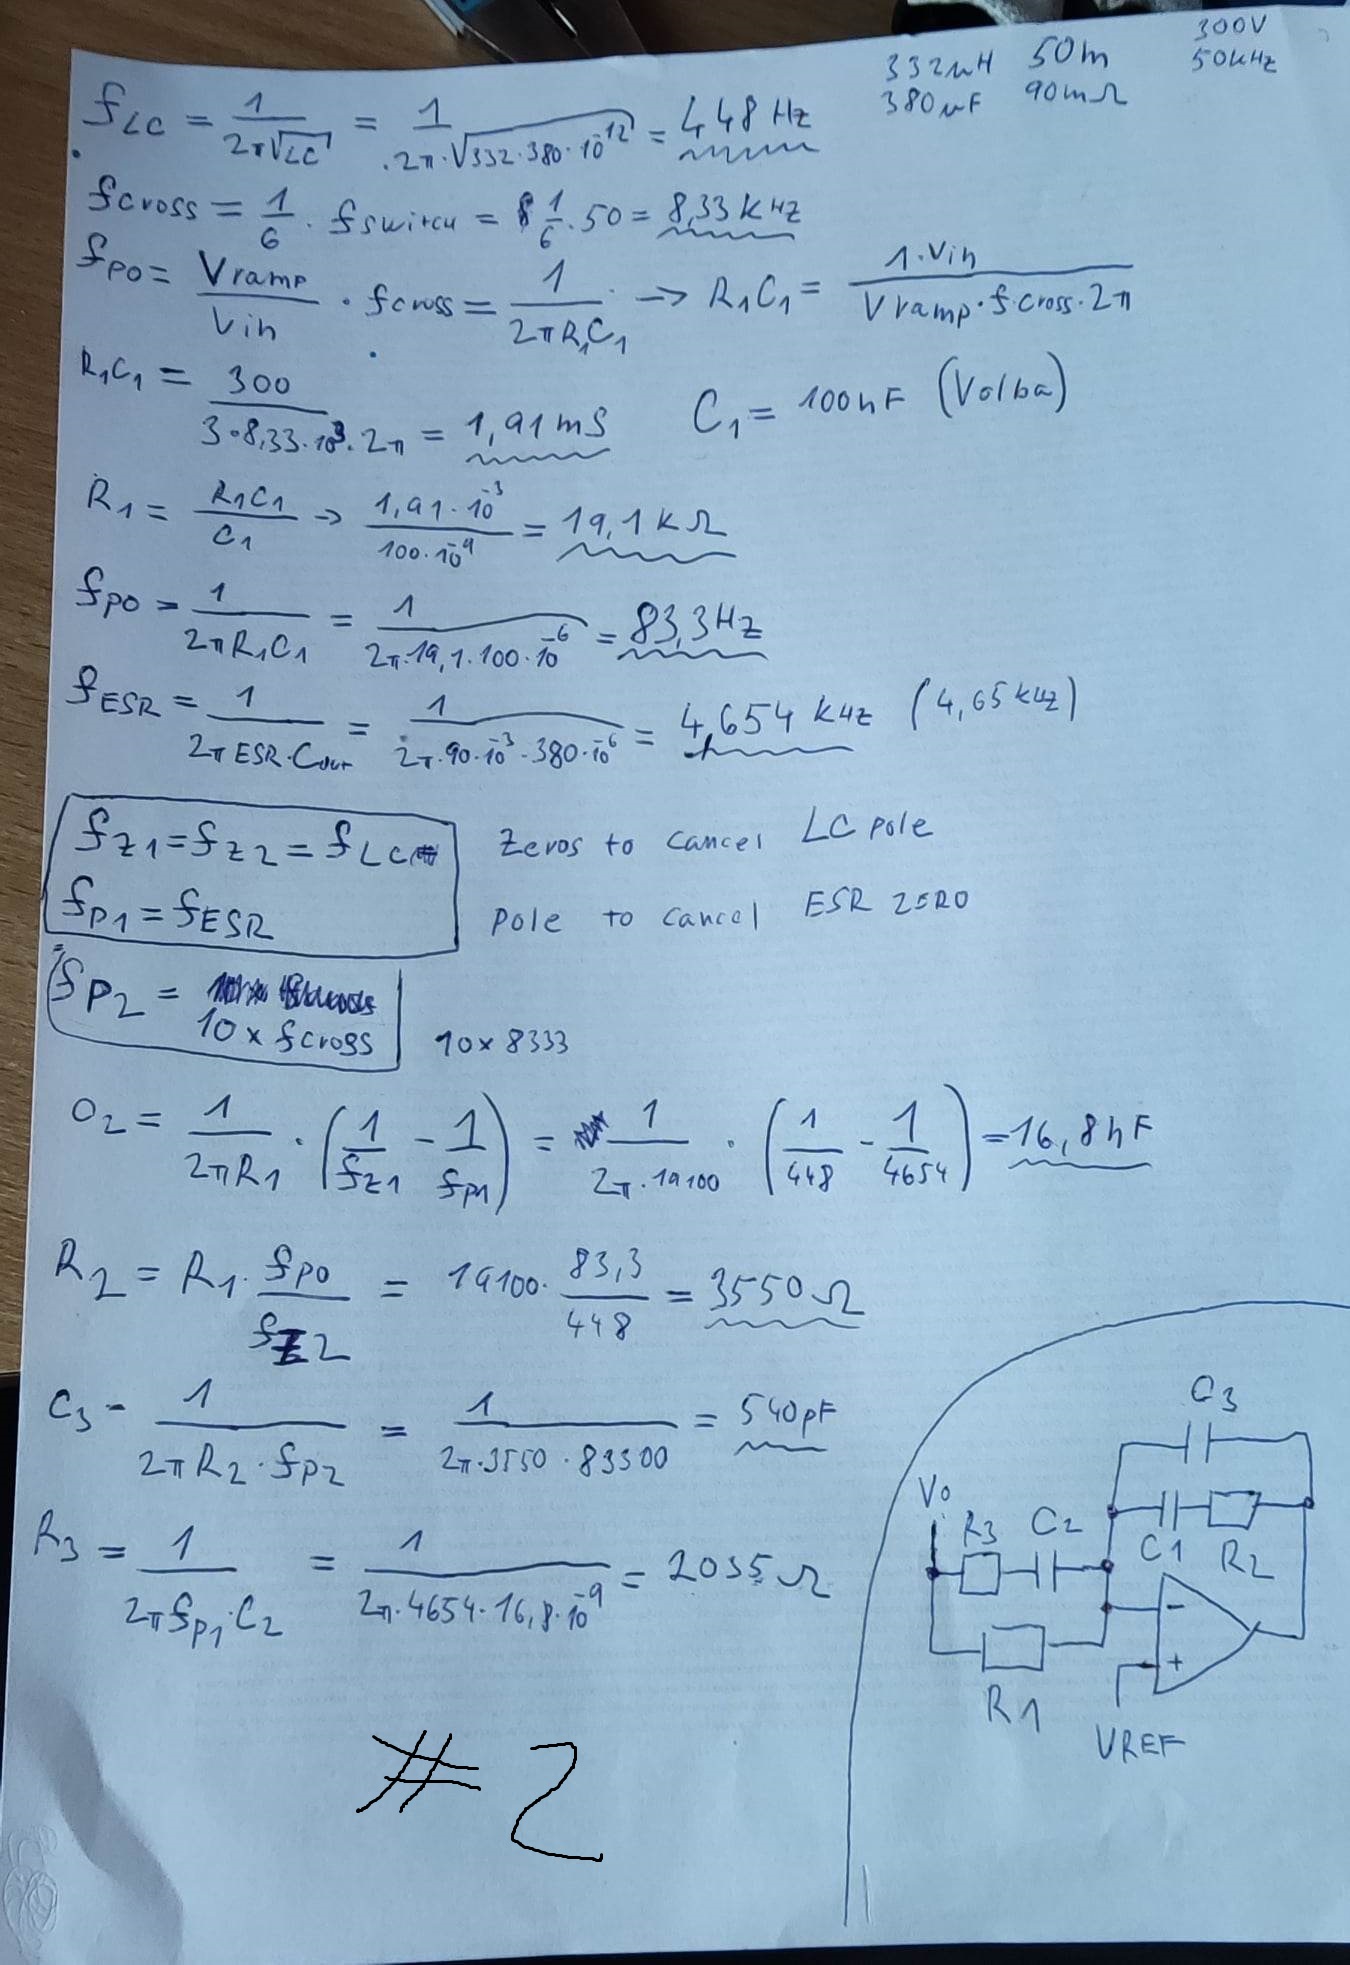 332µH 50m 300V
380µF 90mΩ 50kHz
fLC = 1/(2π√LC) = 1/(2π·√(332·380·10^-12)) = 448 Hz
fcross = 1/6 · fswitch = 1/6 · 50 = 8,33 kHz
fP0 = Vramp/Vin · fcross = 1/(2πR1C1) → R1C1 = 1·Vin/(Vramp·fcross·2π)
R1C1 = 300/(3·8,33·10^3·2π) = 1,91 mS C1 = 100nF (Volba)
R1 = R1C1/C1 → 1,91·10^-3/(100·10^-9) = 19,1 kΩ
fP0 = 1/(2πR1C1) = 1/(2π·19,1·100·10^-6) = 83,3Hz
fESR = 1/(2π ESR·Cout) = 1/(2π·90·10^-3·380·10^-6) = 4,654 kHz (4,65 kHz)
fZ1 = fZ2 = fLC Zeros to cancel LC pole
fP1 = fESR pole to cancel ESR ZERO
fP2 =
10 x fcross 10 x 8333
C2 = 1/(2πR1) · (1/fZ1 - 1/fP1) = 1/(2π·19100) · (1/448 - 1/4654) = 16,8nF
R2 = R1 · fP0/fZ2 = 19100 · 83,3/448 = 3550Ω
C3 - 1/(2πR2·fP2) = 1/(2π·3550·83300) = 540pF
R3 = 1/(2πfP1·C2) = 1/(2π·4654·16,8·10^-9) = 2035Ω
C3
Vo
R3 C2 C1 R2
-
+
R1
VREF
#2